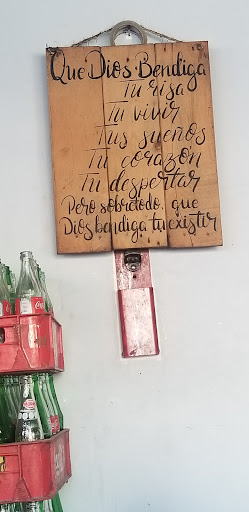 Que Dios Bendiga
Tu risa
Tu vivir
Tus sueños
Tu corazón
Tu despertar
Pero sobretodo, que
Dios bendiga tu existir